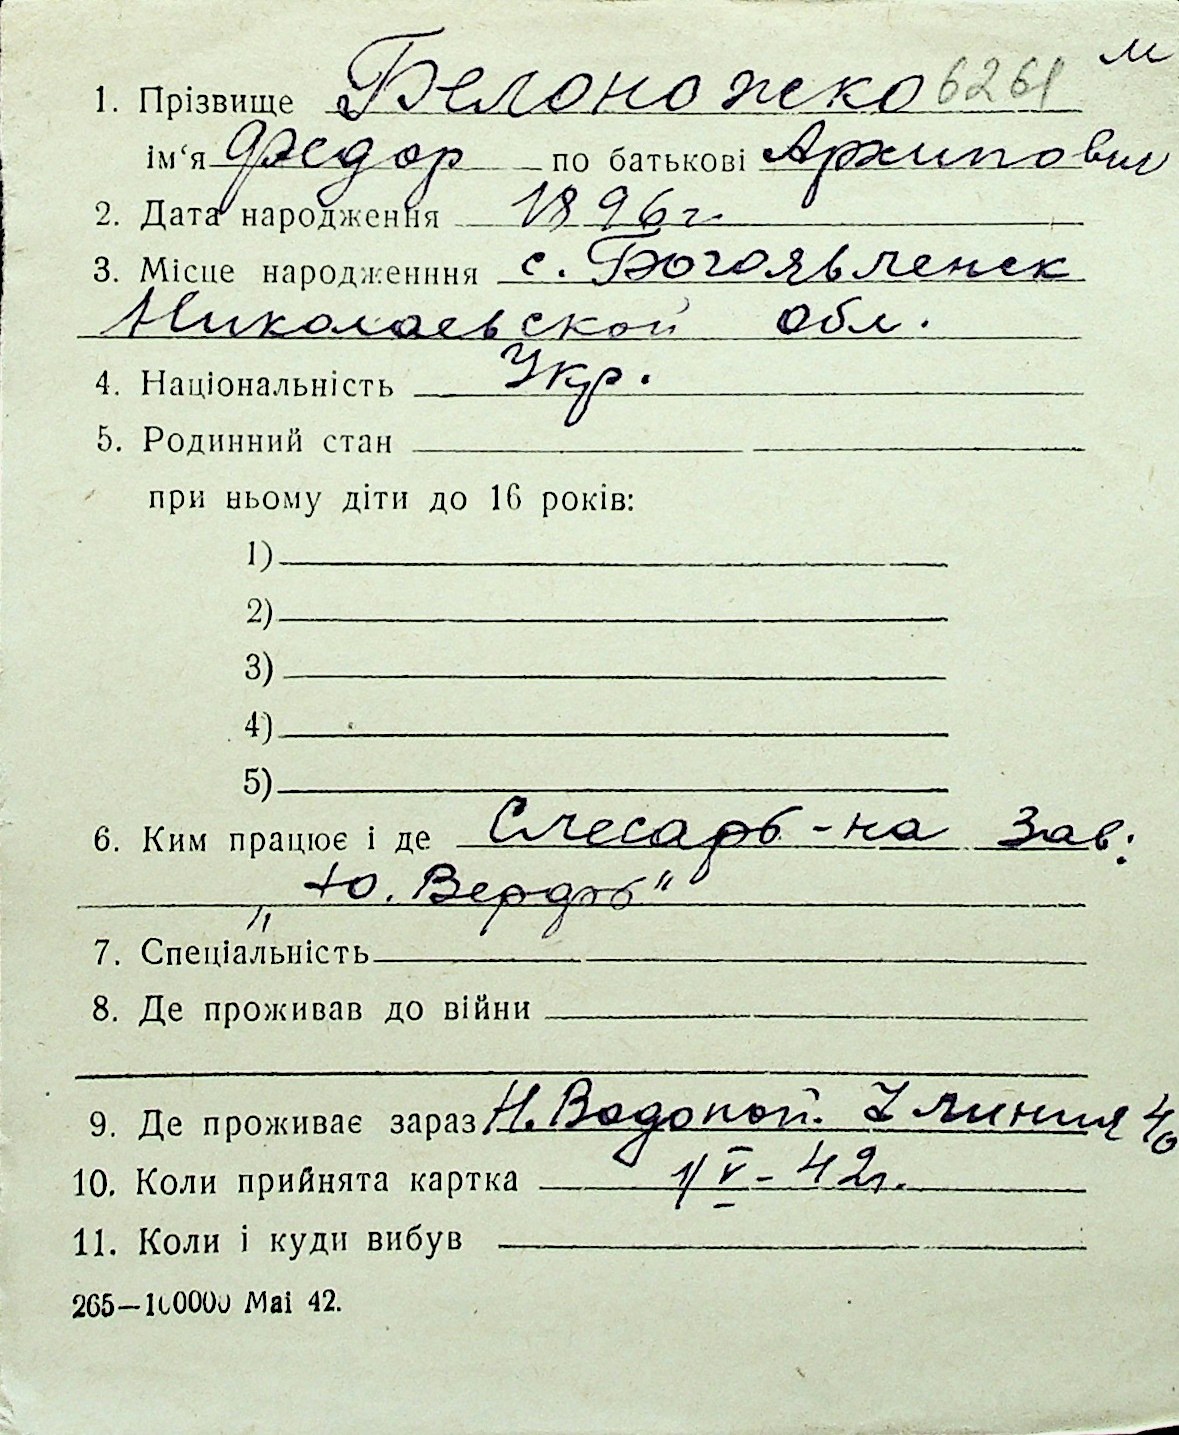 м
1. Прізвище Белоножко 6261
ім‘я Федор по батькові Архипович
2. Дата народження 1896 г.
3. Місце народженння с. Богоявленск
Николаевской обл.
4. Національність Укр.
5. Родинний стан
при ньому діти до 16 років:
1)
2)
3)
4)
5)
6. Ким працює і де Слесарь - на зав:
„Ю. Верфь“
7. Спеціальність
8. Де проживав до війни
9. Де проживає зараз Н. Водопой. 7 линия 40
10. Коли прийнята картка 1/V - 42 г.
11. Коли і куди вибув
265—100000 Mai 42.